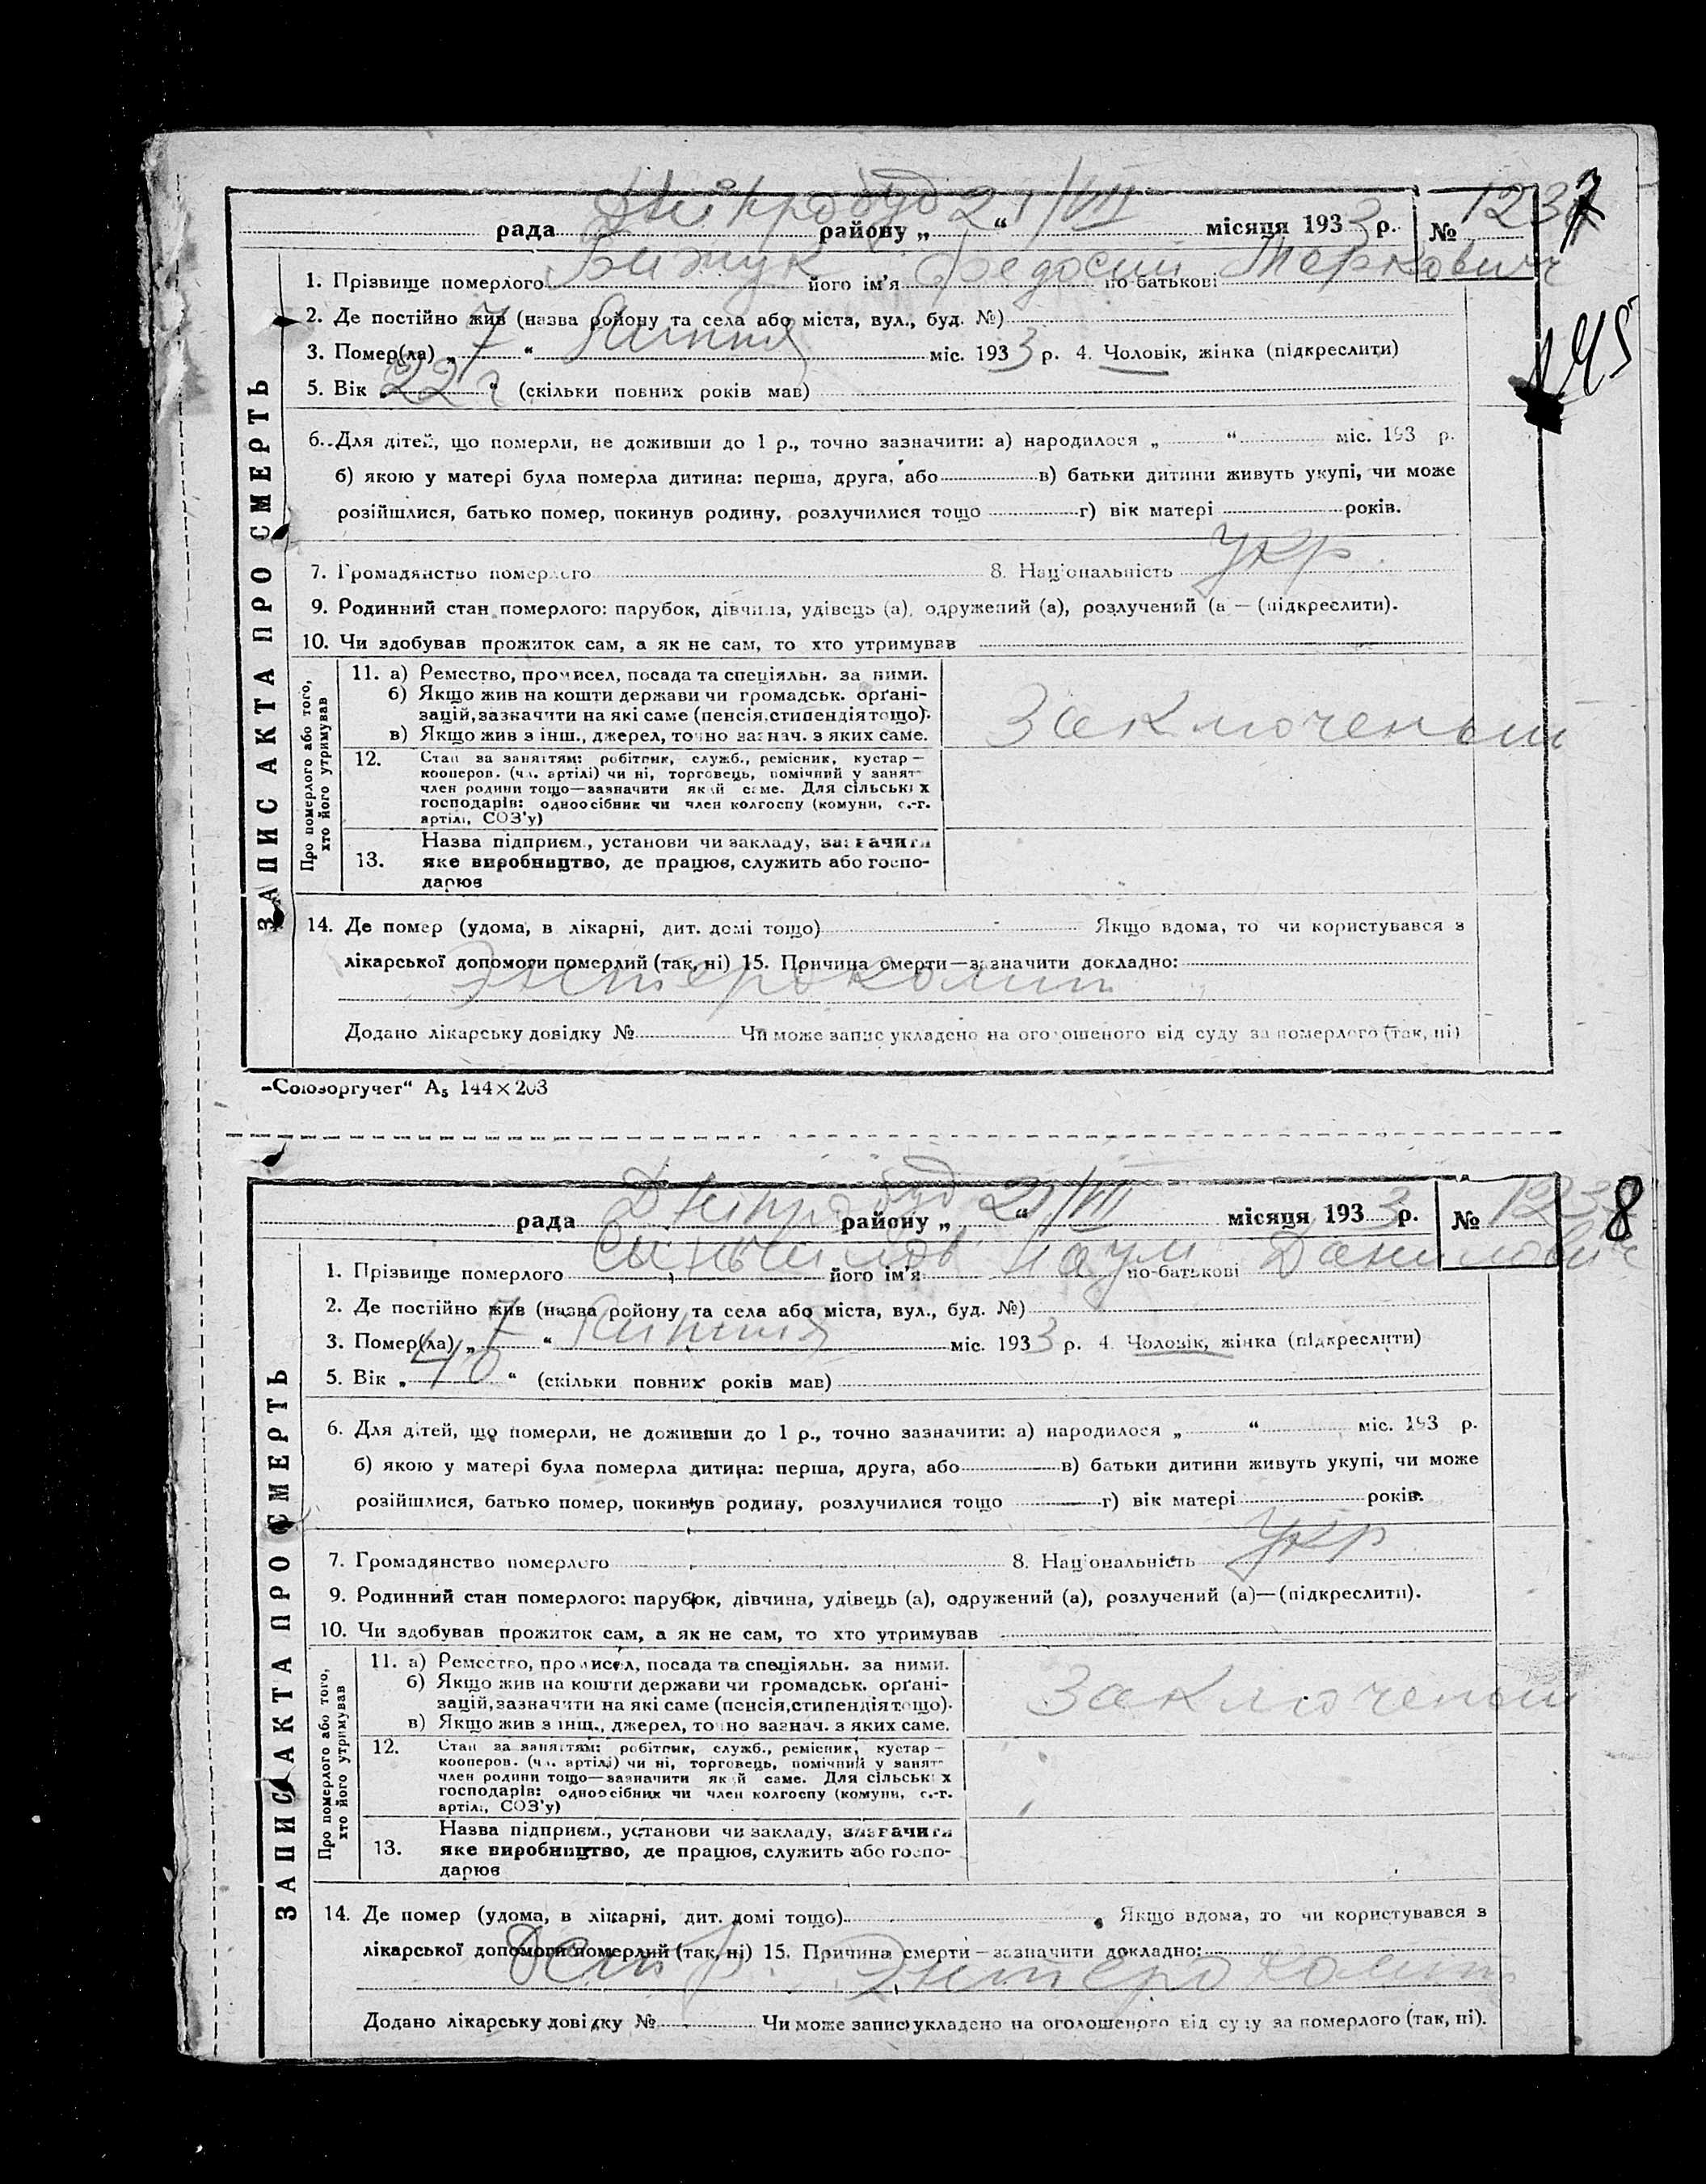 Дніпробуд 21/VII
рада районy „ “ місяця 1933 р. № 123
7
1. Прізвище померлого Бижук його ім'я Федосий по-батькові Маркович
2. Де постійно жив (назва району та села або міста, вул., буд. №)
145
3. Помер(ла) „ 7 “ Липня міс. 1933 р. 4. Чоловік, жінка (підкреслити)
5. Вік „ 22 г “ (скільки повних років мав)
6. Для дітей, що померли, не доживши до 1 р., точно зазначити: а) народилося „ “ міс. 193 р.
б) якою у матері була померла дитина: перша, друга, або в) батьки дитини живуть укупі, чи може
розійшлися, батько помер, покинув родину, розлучилися тощо г) вік матері років.
7. Громадянство померлого 8. Національність Укр.
9. Родинний стан померлого: парубок, дівчина, удівець (а), одружений (а), розлучений (а — (підкреслити).
10. Чи здобував прожиток сам, а як не сам, то хто утримував
ЗАПИС АКТА ПРО СМЕРТЬ
Про померлого або того,
хто його утримував
11. а) Ремество, промисел, посада та спеціяльн. за ними.
б) Якщо жив на кошти держави чи громадськ. орґані-
зацій, зазначити на які саме (пенсія, стипендія тощо).
в) Якщо жив з інш., джерел, точно зазнач. з яких саме.
Заключеный
12. Стан за заняттям: робітник, служб., ремісник, кустар —
кооперов. (чл. артілі) чи ні, торговець, помічний у занят
член родини тощо—зазначити який саме. Для сільських
господарів: одноосібник чи член колгоспу (комуни, с.-г.
артілі, СОЗ'у)
13. Назва підприєм., установи чи закладу, зазначити
яке виробництво, де працює, служить або госпо-
дарює
14. Де помер (удома, в лікарні, дит. домі тощо) Якщо вдома, то чи користувався з
лікарської допомоги померлий (так, ні) 15. Причина смерти—зазначити докладно:
Энтероколит
Додано лікарську довідку № Чи може запис укладено на оголошеного від суду за померлого (так, ні)
„Союзоргучет“ А₅ 144×203
Дніпробуд 21/VII
рада району „ “ місяця 1933 р. № 123
8
1. Прізвище померлого його ім'я Наум по-батькові Данилович
2. Де постійно жив (назва району та села або міста, вул., буд. №)
3. Помер(ла) „ 7 “ Липня міс. 1933 р. 4. Чоловік, жінка (підкреслити)
5. Вік „ 40 “ (скільки повних років мав)
6. Для дітей, що померли, не доживши до 1 р., точно зазначити: а) народилося „ “ міс. 193 р.
б) якою у матері була померла дитина: перша, друга, або в) батьки дитини живуть укупі, чи може
розійшлися, батько помер, покинув родину, розлучилися тощо г) вік матері років.
7. Громадянство померлого 8. Національність Укр
9. Родинний стан померлого: парубок, дівчина, удівець (а), одружений (а), розлучений (а)—(підкреслити).
10. Чи здобував прожиток сам, а як не сам, то хто утримував
ЗАПИС АКТА ПРО СМЕРТЬ
Про померлого або того,
хто його утримував
11. а) Ремество, промисел, посада та спеціяльн. за ними.
б) Якщо жив на кошти держави чи громадськ. орґані-
зацій, зазначити на які саме (пенсія, стипендія тощо).
в) Якщо жив з інш., джерел, точно зазнач. з яких саме.
Заключеный
12. Стан за заняттям: робітник, служб., ремісник, кустар —
кооперов. (чл. артілі) чи ні, торговець, помічний у занят
член родини тощо—зазначити який саме. Для сільських
господарів: одноосібник чи член колгоспу (комуни, с.-г.
артілі, СОЗ'у)
13. Назва підприєм., установи чи закладу, зазначити
яке виробництво, де працює, служить або госпо-
дарює
14. Де помер (удома, в лікарні, дит. домі тощо) Якщо вдома, то чи користувався з
лікарської допомоги померлий (так, ні) 15. Причина смерти—зазначити докладно:
Энтероколит
Додано лікарську довідку № Чи може запис укладено на оголошеного від суду за померлого (так, ні).